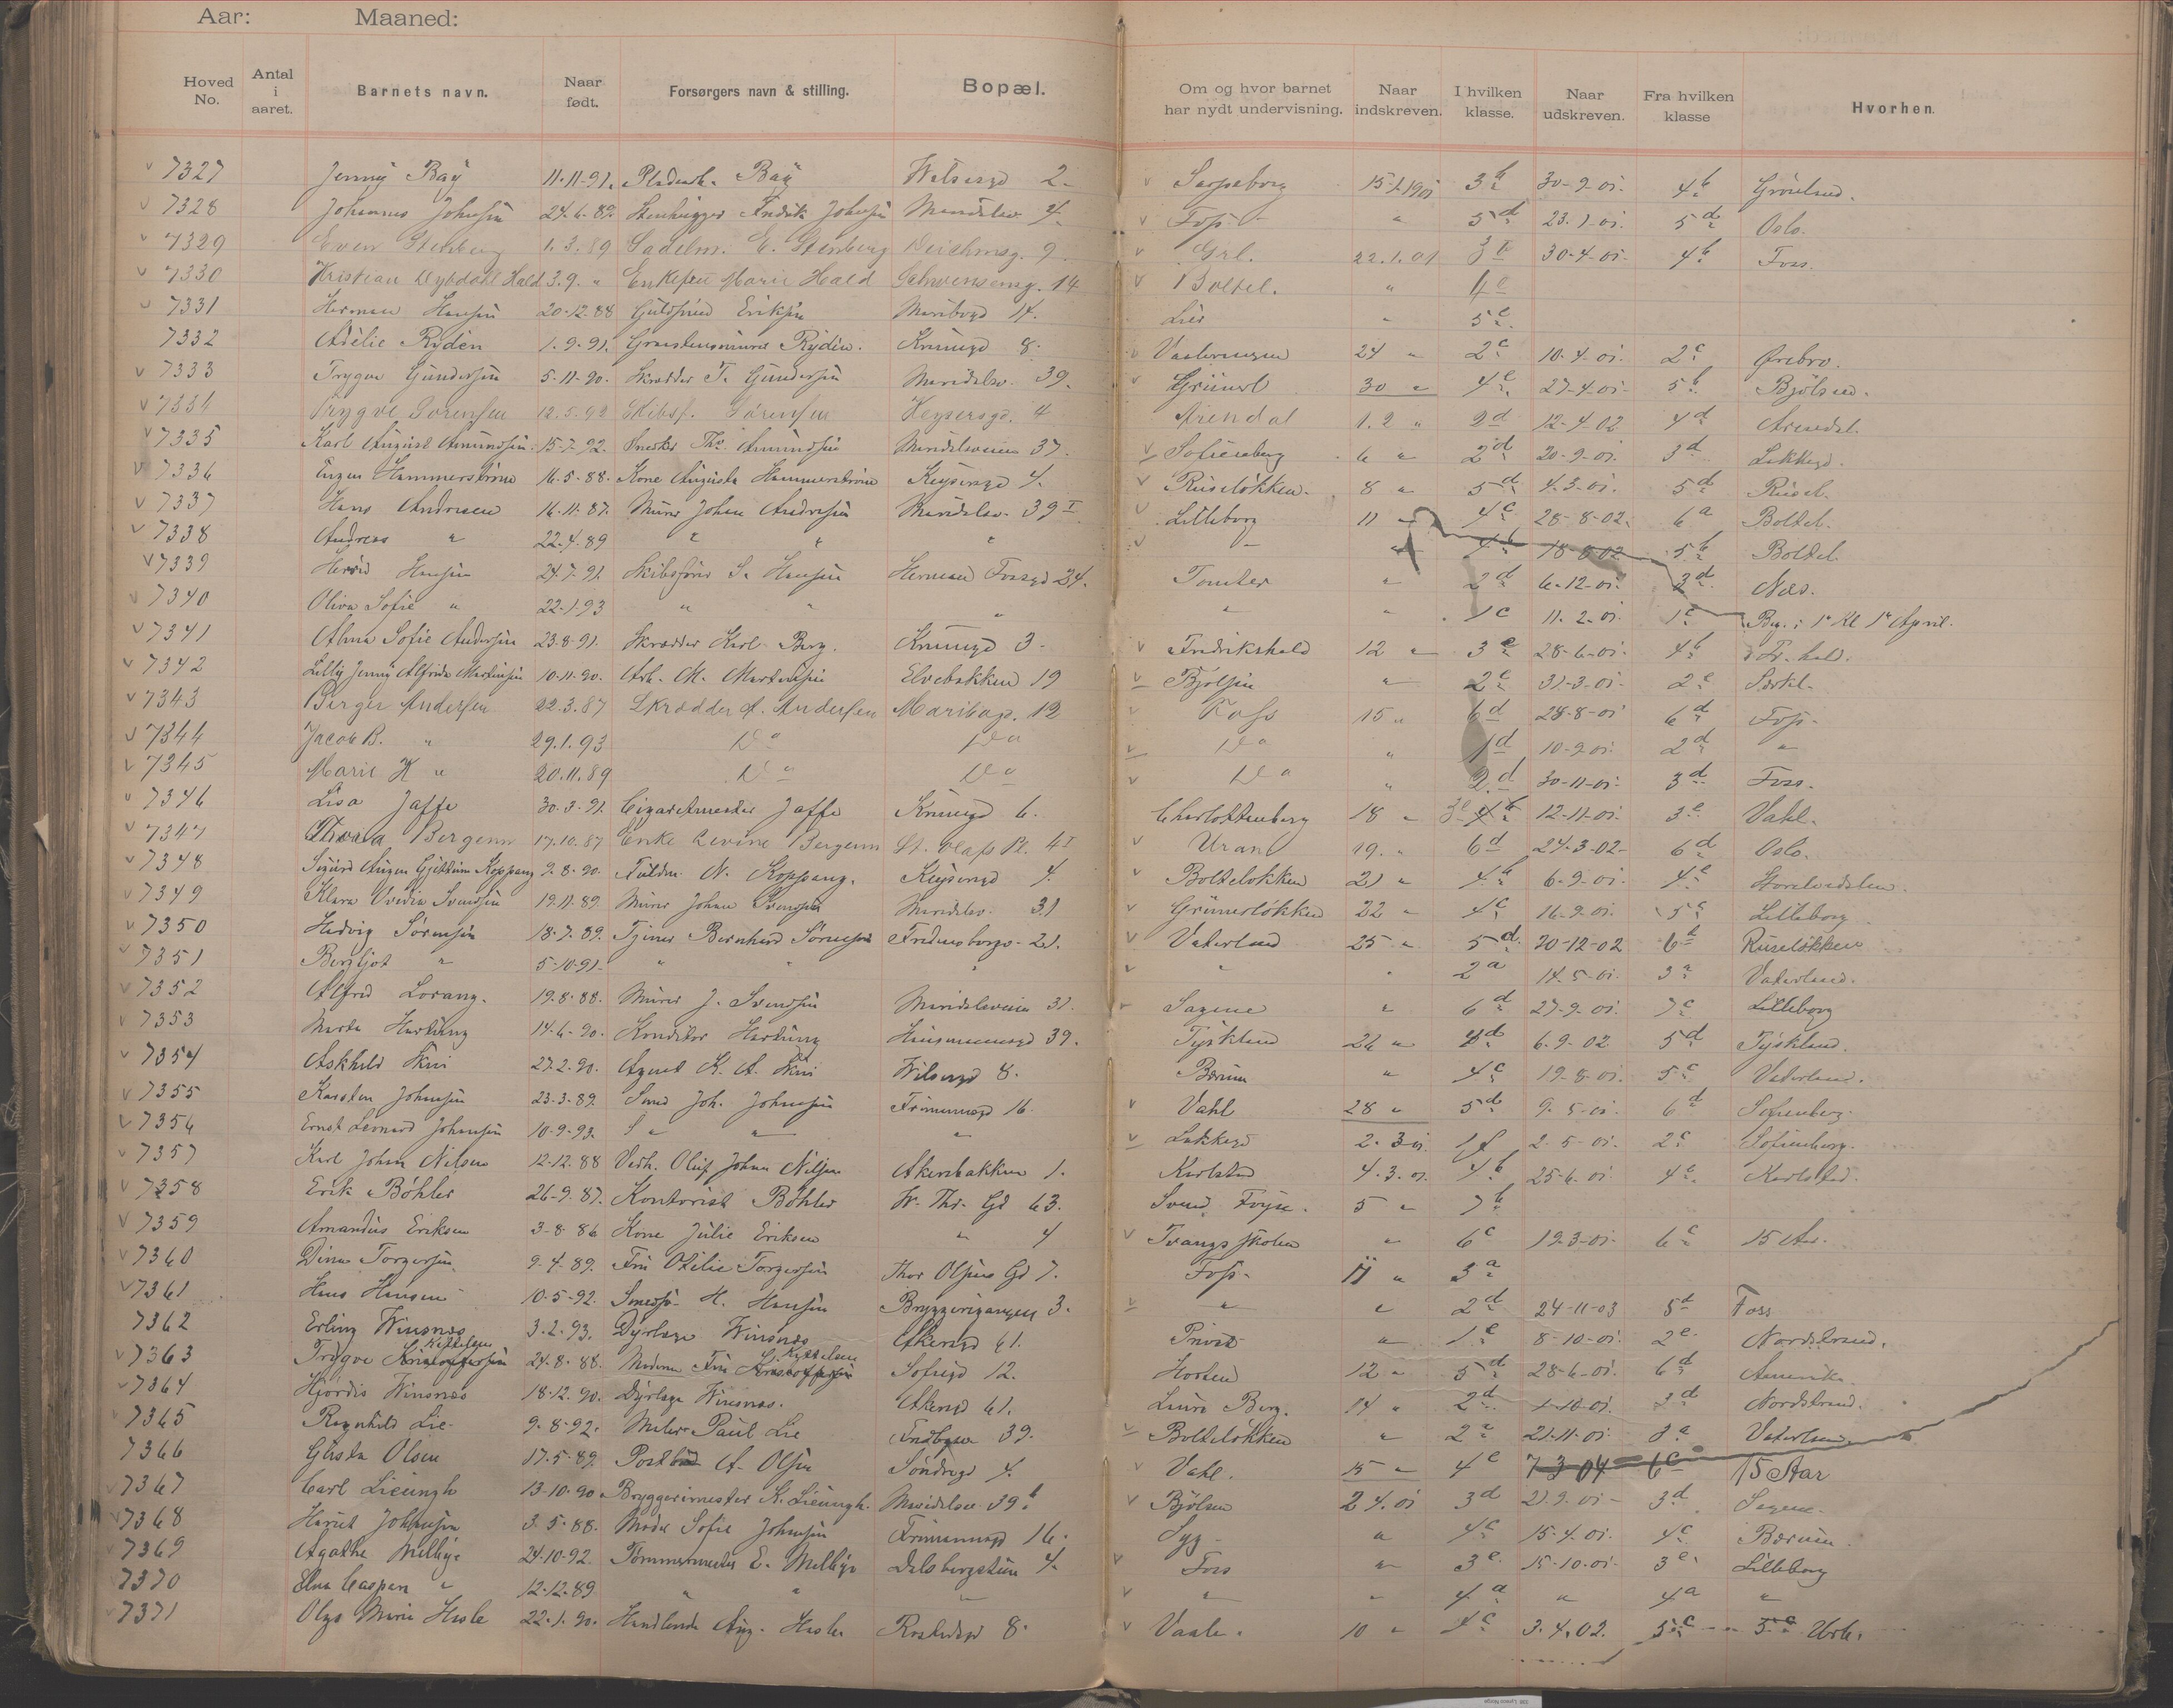 Aar: Maaned:
Hoved No. Antal i aaret. Barnets navn. Naar født. Forsørgers navn & stilling. Bopæl. Om og hvor barnet har nydt undervisning. Naar indskreven. I hvilken klasse. Naar udskreven. Fra hvilken klasse Hvorhen.
7327 Jenny Bay 11-11-91. Bay 2. Sarpsborg 15-1-1901 3 b 30-9-01. 4 b Grönland.
7328 Johannes Johnsen 24-6-89. Stenhugger Fredrik Johnsen Maridalsv. 4. Foss 5 d 23-1-01. 5 d Oslo.
7329 Even Stenberg 1.3.89 Sadelm. E. Stenberg Deichmsg. 9. Grl. 22.1.01 3 b 30-4-01. 4 b Foss.
7330 Kristian Dybdahl Hald 3.9. " Enkefru Marie Hald Schwenseng. 14 Boltel. " 4 c
7331 Herman Hansen 20-12-88 Guldsmed Eriksen Maribogd 14. Lier " 5 c
7332 Adélie Rydén 1-9-91. Rydén. Krumgd 8. Vaalerengen 24 " 2 c 10-4-01. 2 c Ørebro.
7333 Trygve Gundersen 5-11-90. Skrædder T. Gundersen Maridalsv. 39. Grünerl 30 " 4 c 27-4-01. 5 b Bjölsen.
7334 Trygve Sørensen 12.5.92 Skibsf. Sørensen Keysersgd. 4 Arendal 1.2 " 2 d 12-4-02 4 d Arendal.
7335 Karl August Amundsen 15-7-92. Snedker Th. Amundsen Maridalsveien 37. Sofienberg 6 " 2 d 20-9-01. 3 d Lakkegd.
7336 Eugen Hammerström 16-5-88. Kone Augusta Hammerström Keysersgd 4. Ruselökken. 8 " 5 d 4-3-01. 5 d Rusel.
7337 Hans Andresen 16-11-87. Murer Johan Andresen Maridalsv. 39 I Lilleborg 11 " 4 c 28-8-02. 6 a Boltel.
7338 Andreas " 22-4-89 " " " 4 b 18-8-02 5 b Boltel
7339 Hansen 24-7-91. Skibsfører S. Hansen Herman Fossgd 24. Tomter " 2 d 6-12-01. 3 d Næs.
7340 Oliva Sofie " 22-1-93 " " " " " 1 c 11-2-01. 1 c Beg. i 1ste Kl 1ste April.
7341 Alma Sofie Andersen 23-8-91. Skrædder Karl Berg. Krumgd 3. Fredrikshald 12 " 3 c 28-6-01. 4 b Fr. hald.
7342 Lilly Jenny Alfrida Martinsen 10-11-90. Arb. M. Martinsen Elvebakken 19 Bjölsen " 2 c 31-3-01. 2 c
7343 Birger Andersen 22.3.87 Skrædder A. Andersen Maribog. 12 Foss 15 " 6 d 28-8-01 6 d Foss.
7344 Jacob B. " 29.1.93 Do Do Do " 1 d 10-9-01. 2 d "
7345 Marie K " 20.11.89 Do Do Do " 2 d 30-11-01. 3 d Foss.
7346 Lisa Jaffe 30-3-91. Cigaretmester Jaffe Krumgd 6. Charlottenberg 18 " 3 c 12-11-01. 3 c Vahl.
7347 Thora Bergenn 17.10.87 Enke Levine Bergenn St. Olafs Pl. 4 I Uran 19. " 6 d 24-3-02 6 d Oslo.
7348 Sigurd Koppang 9-8-90. Fuldm. N. Koppang. Keysersgd 4. Boltelökken 21 " 4 b 6-9-01. 4 c
7349 Klara Ovidia Svendsen 19-11-89 Murer Johan Svendsen Maridalsv. 31 Grünerlökken 22 " 4 c 16-9-01. 5 c Lilleborg
7350 Hedvig Sørensen 18-7-89. Tjener Bernhard Sørensen Fredensborgv. 21. Vaterland 25 " 5 d 30-12-02 6 b Ruselökken
7351 Bergljot " 5-10-91. " " " " 2 a 14-5-01. 3 a Vaterland.
7352 Alfred Lorang. 19-8-88. Murer J. Svendsen Maridalsveien 31. Sagene " 6 d 27-9-01. 7 c Lilleborg
7353 Marta Hartung 14-6-90. Konditor Hartung Hausmannsgd 39. Tyskland 26 " d 6-9-02 5 d Tyskland.
7354 Askhild Skui 27-2-90. Agent K. A. Skui Wilsesgd 8. Bærum " 4 c 19-8-01. 5 c Vaterland.
7355 Karsten Johnsen 23-3-89. Smed Joh. Johnsen Frimannsgd 16. Vahl 28 " 5 d 9-5-01. 6 d Sofienberg.
7356 Ernst Leonard Johnsen 10-9-93. " " " Lakkegd 2-3-01 1 f 2-5-01. 2 c Sofienberg.
7357 Karl Johan Nilsen 12-12-88 Oluf Johan Nilsen Akersbakken 1. Karlstad 4.3.01. 4 b 25-6-01 4 c Karlstad.
7358 Erik Böhler 26-9-87. Kontorist Böhler W. Thr. Gd 63. Svend Foyn. 5 " 7 b
7359 Amandus Eriksen 3-8-86 Kone Julie Eriksen " 4 Tvangsskolen " 6 c 19-3-01. 6 c 15 Aar.
7360 Dina Torgersen. 9-4-89. Fru Otilie Torgersen Thor Olsens Gd 7. Foss 11 " 3 a
7361 Hans Hansen 10-5-92. H. Hansen Bryggerigangen 3. " " 2 d 24-11-03 5 d Foss
7362 Erling Winsnæs 3-2-93. Dyrlæge Winsnæs Akersgd 61. Privat " 1 c 8-10-01. 2 c Nordstrand.
7363 Trygve Kristoffersen Kittelsen 24-8-88. Moderen Fru Kristoffersen Kittelsen Sofiegd 12. Horten 12 " 5 d 28-6-01. 6 d Amerika.
7364 Hjördis Winsnæs 18-12-90. Dyrlæge Winsnæs. Akersgd 61. Laura Berg. 14 " 2 d 1-10-01. 3 d Nordstrand.
7365 Ragnhild Lie 9-8-92. Maler Paul Lie 39. Boltelökken " 2 a 21-11-01. 3 a Vaterland
7366 Gusta Olsen 17-5-89. Postbud A. Olsen Söndregd 4. Vahl. 15 " 4 c 7-3-04 6 c 15 Aar
7367 Carl Lieungh 13-10-90 Bryggerimester K. Lieungh. Maridalsv. 39 b Bjölsen 2 4.01 3 d 21.9.01 3 d Sagene.
7368 Harriet Johnsen 3-5-88. Moder Sofie Johnsen Frimannsgd 16. Syg " 4 c 15-4-01. 4 c Bærum.
7369 Agathe Melbye 24-10-92. Tømmermester E. Melbye Delsbergstien 4. Foss " 3 c 15-10-01. 3 c Lilleborg
7370 Caspara " 12-12-89 " " " " " 4 a " 4 a "
7371 Olga Marie Hasle 22-1-90. Handlende Aug. Hasle Rostedsgd 8. Vaale. 10 " 4 c 3.4.02. 5 c